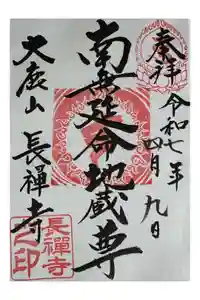 奉拝
令和七年
四月九日
南無延命地蔵尊
大鹿山 長禪寺
長禪寺之印